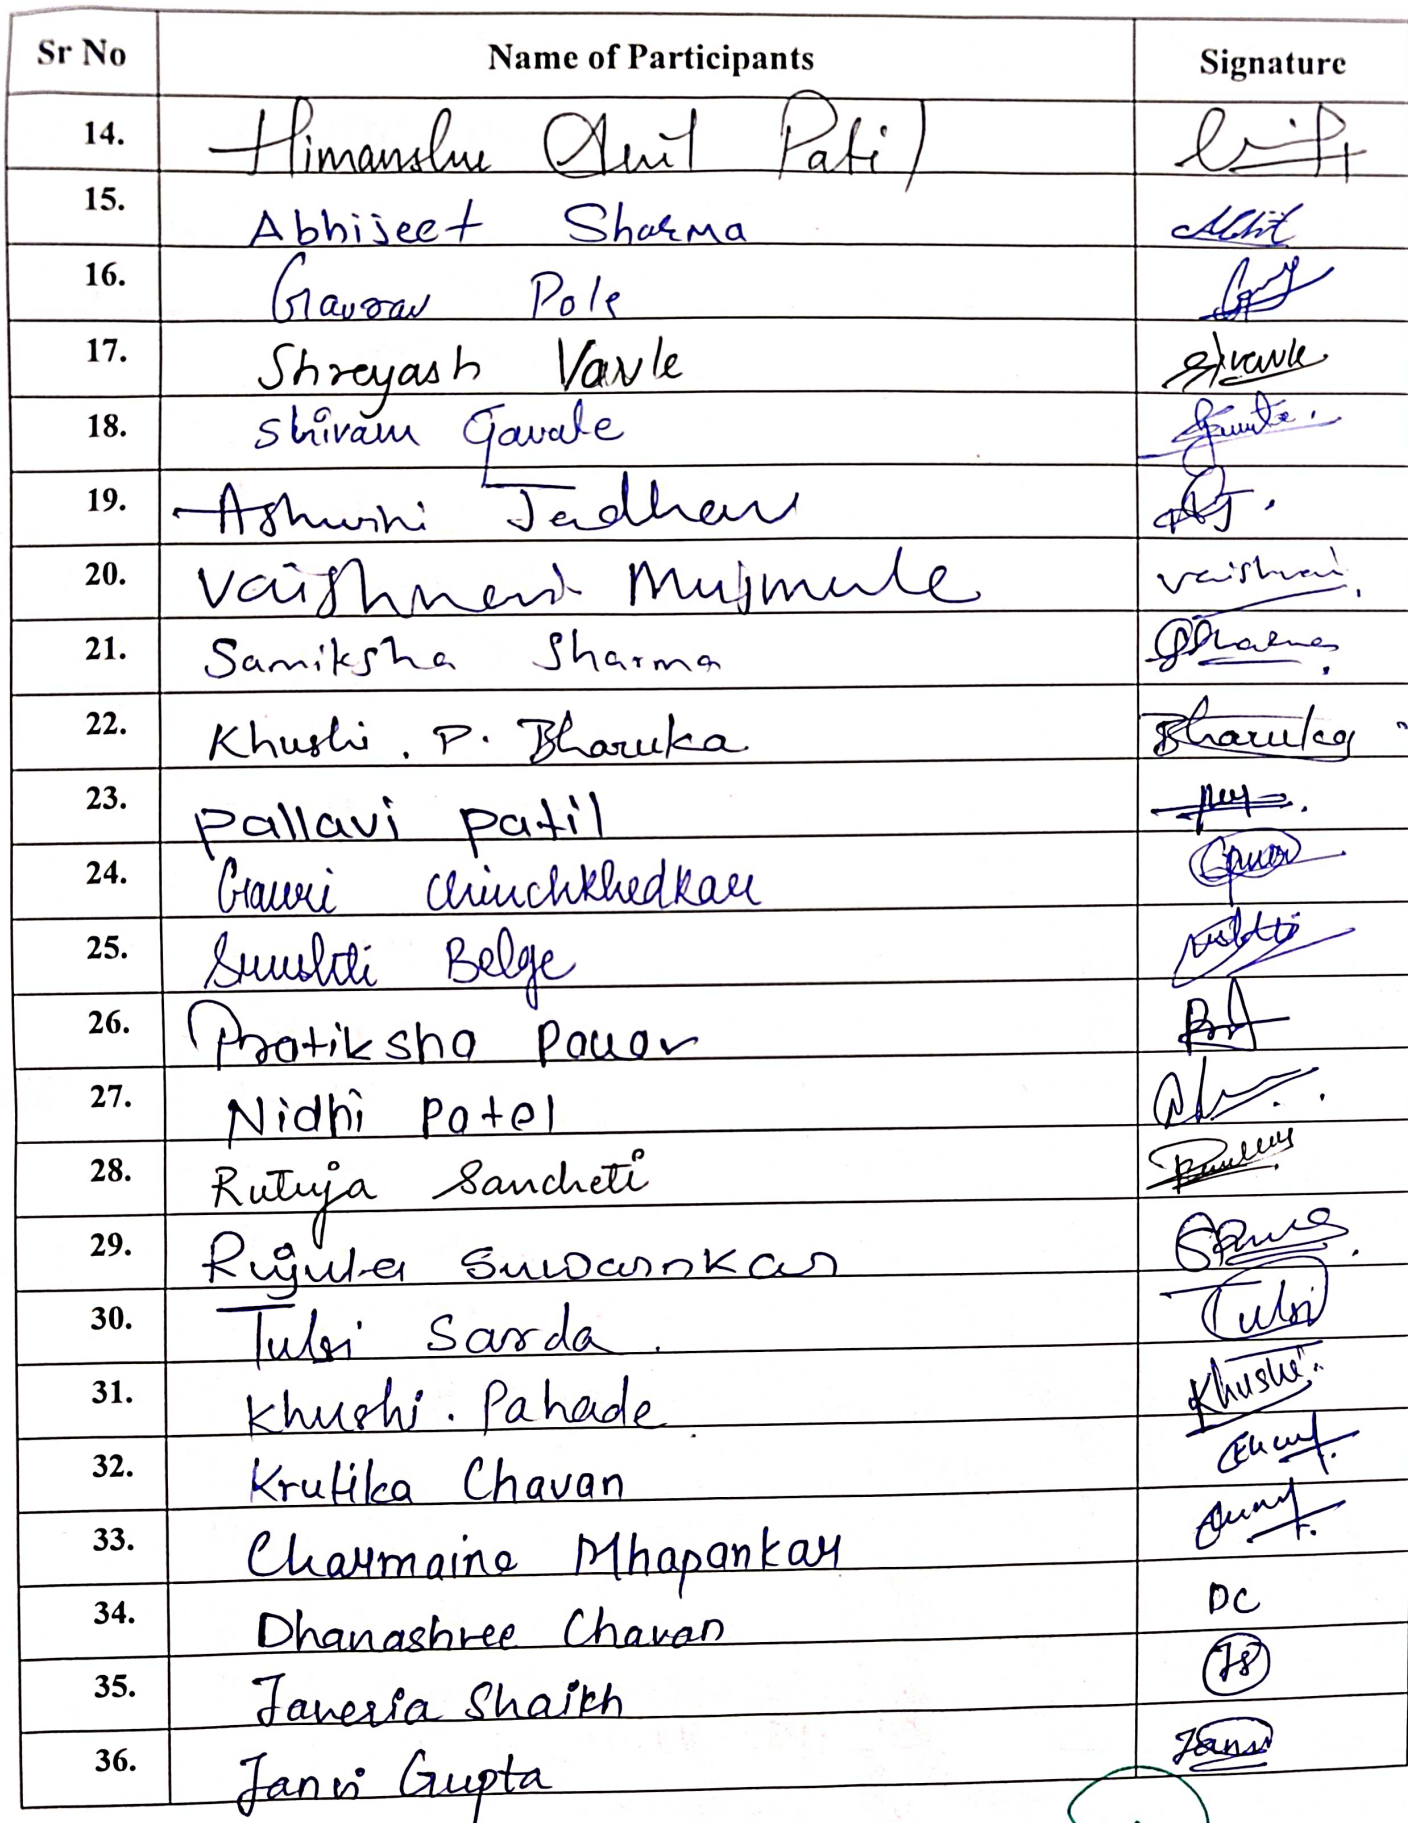 Sr No Name of Participants Signature
14. Himanshu Anil Patil
15. Abhijeet Sharma
16. Gaurav Pole
17. Shreyash Vavle
18. Shivam Gavate
19. Ashwini Jadhav
20. Vaishnavi Mujmule Vaishnavi
21. Samiksha Sharma Sharma
22. Khushi . P. Bharuka Bharuka
23. Pallavi Patil
24. Gauri Chinchkhedkar
25. Srushti Belge
26. Pratiksha Pawar
27. Nidhi Patel
28. Rutuja Sancheti
29. Rujula Suwarnkar
30. Tulsi Sarda . Tulsi
31. Khushi . Pahade Khushi
32. Krutika Chavan
33. Charmaine Mhapankar
34. Dhanashree Chavan DC
35. Javeria Shaikh JS
36. Janvi Gupta Janvi